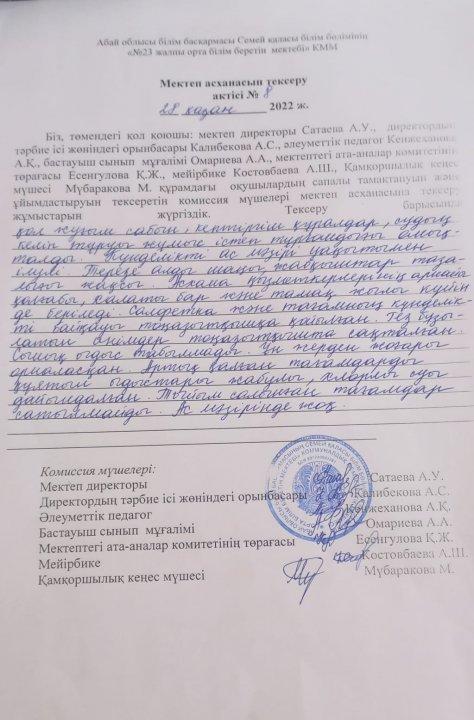 Абай облысы білім басқармасы Семей қаласы білім бөлімінің
«№23 жалпы орта білім беретін мектебі» КММ
Мектеп асханасын тексеру
актісі № 8
28 қазан 2022 ж.
Біз, төмендегі қол қоюшы: мектеп директоры Сатаева А.У., директордың
тәрбие ісі жөніндегі орынбасары Калибекова А.С., әлеуметтік педагог Кенжеханова
А.Қ., бастауыш сынып мұғалімі Омариева А.А., мектептегі ата-аналар комитетінің
төрағасы Есенгулова Қ.Ж., мейірбике Костовбаева А.Ш., Қамқоршылық кеңес
мүшесі Мубаракова М. құрамдағы оқушылардың сапалы тамақтануын және
ұйымдастыруын тексеретін комиссия мүшелері мектеп асханасына тексеру
жұмыстарын жүргіздік. Тексеру барысында
қол жуғыш сабын, кептіргіш құралдар, судың
келіп тұруы жұмыс істеп тұрғандығы анық-
талды. Күнделікті ас мәзірі уақытымен
ілулі. Терезе алды шаңы, жабқыштар таза-
лығы жақсы. Асхана қызметкерлерінің арнайы
қолғабы, халаты бар және тамақ жылы күйін
де беріледі. Салфетка және тағамның күнделік-
ті байқауы тоңазытқышқа қойылған. Тез бұзы-
латын өнімдер тоңазытқышта сақталған.
Сынық ыдыс табылмады. Ұн жерден жоғары
орналасқан. Артық қалған тағамдарды
құятын ыдыстары жабулы, хлорлы суы
дайындалған. Тыйым салынған тағамдар
сатылмайды. Ас мәзірінде жоқ.
Комиссия мүшелері:
Мектеп директоры Сатаева А.У.
Директордың тәрбие ісі жөніндегі орынбасары Калибекова А.С.
Әлеуметтік педагог Кенжеханова А.Қ.
Бастауыш сынып мұғалімі Омариева А.А.
Мектептегі ата-аналар комитетінің төрағасы Есенгулова Қ.Ж.
Мейірбике Костовбаева А.Ш.
Қамқоршылық кеңес мүшесі Мубаракова М.